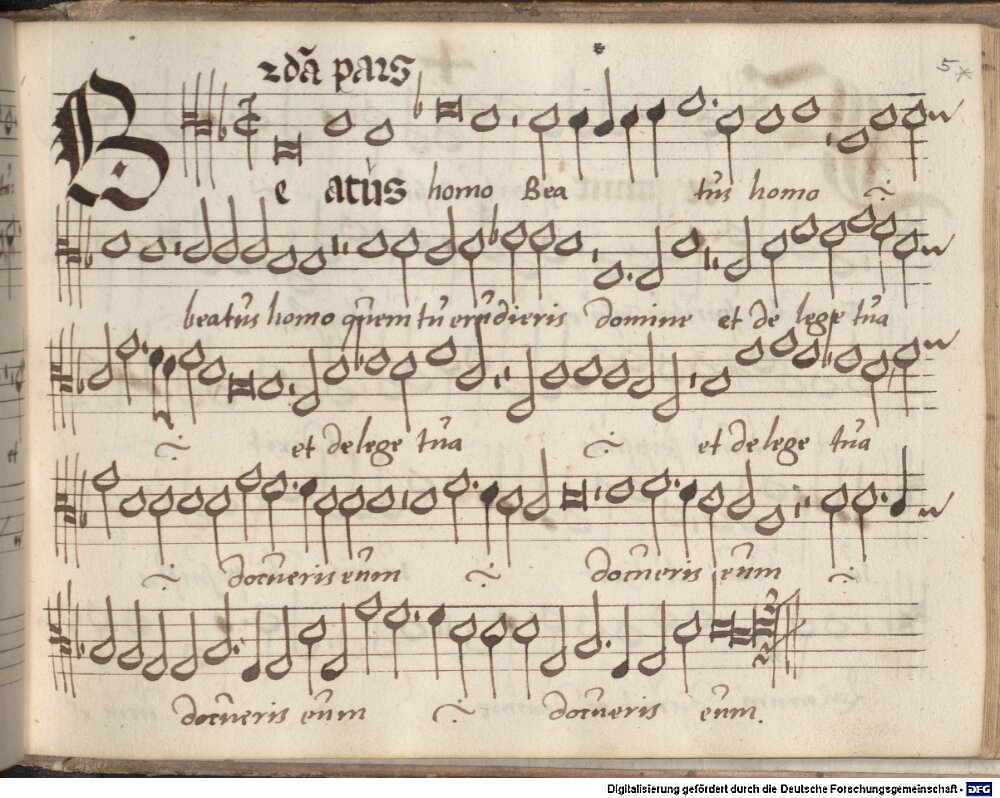 2dã pars
5
Be atus homo Bea tus homo
beatus homo quem tu erudieris domine et de lege tua
et de lege tua et de lege tua
docueris eum docueris eum
docueris eum docueris eum.
et
Digitalisierung gefördert durch die Deutsche Forschungsgemeinschaft - DFG